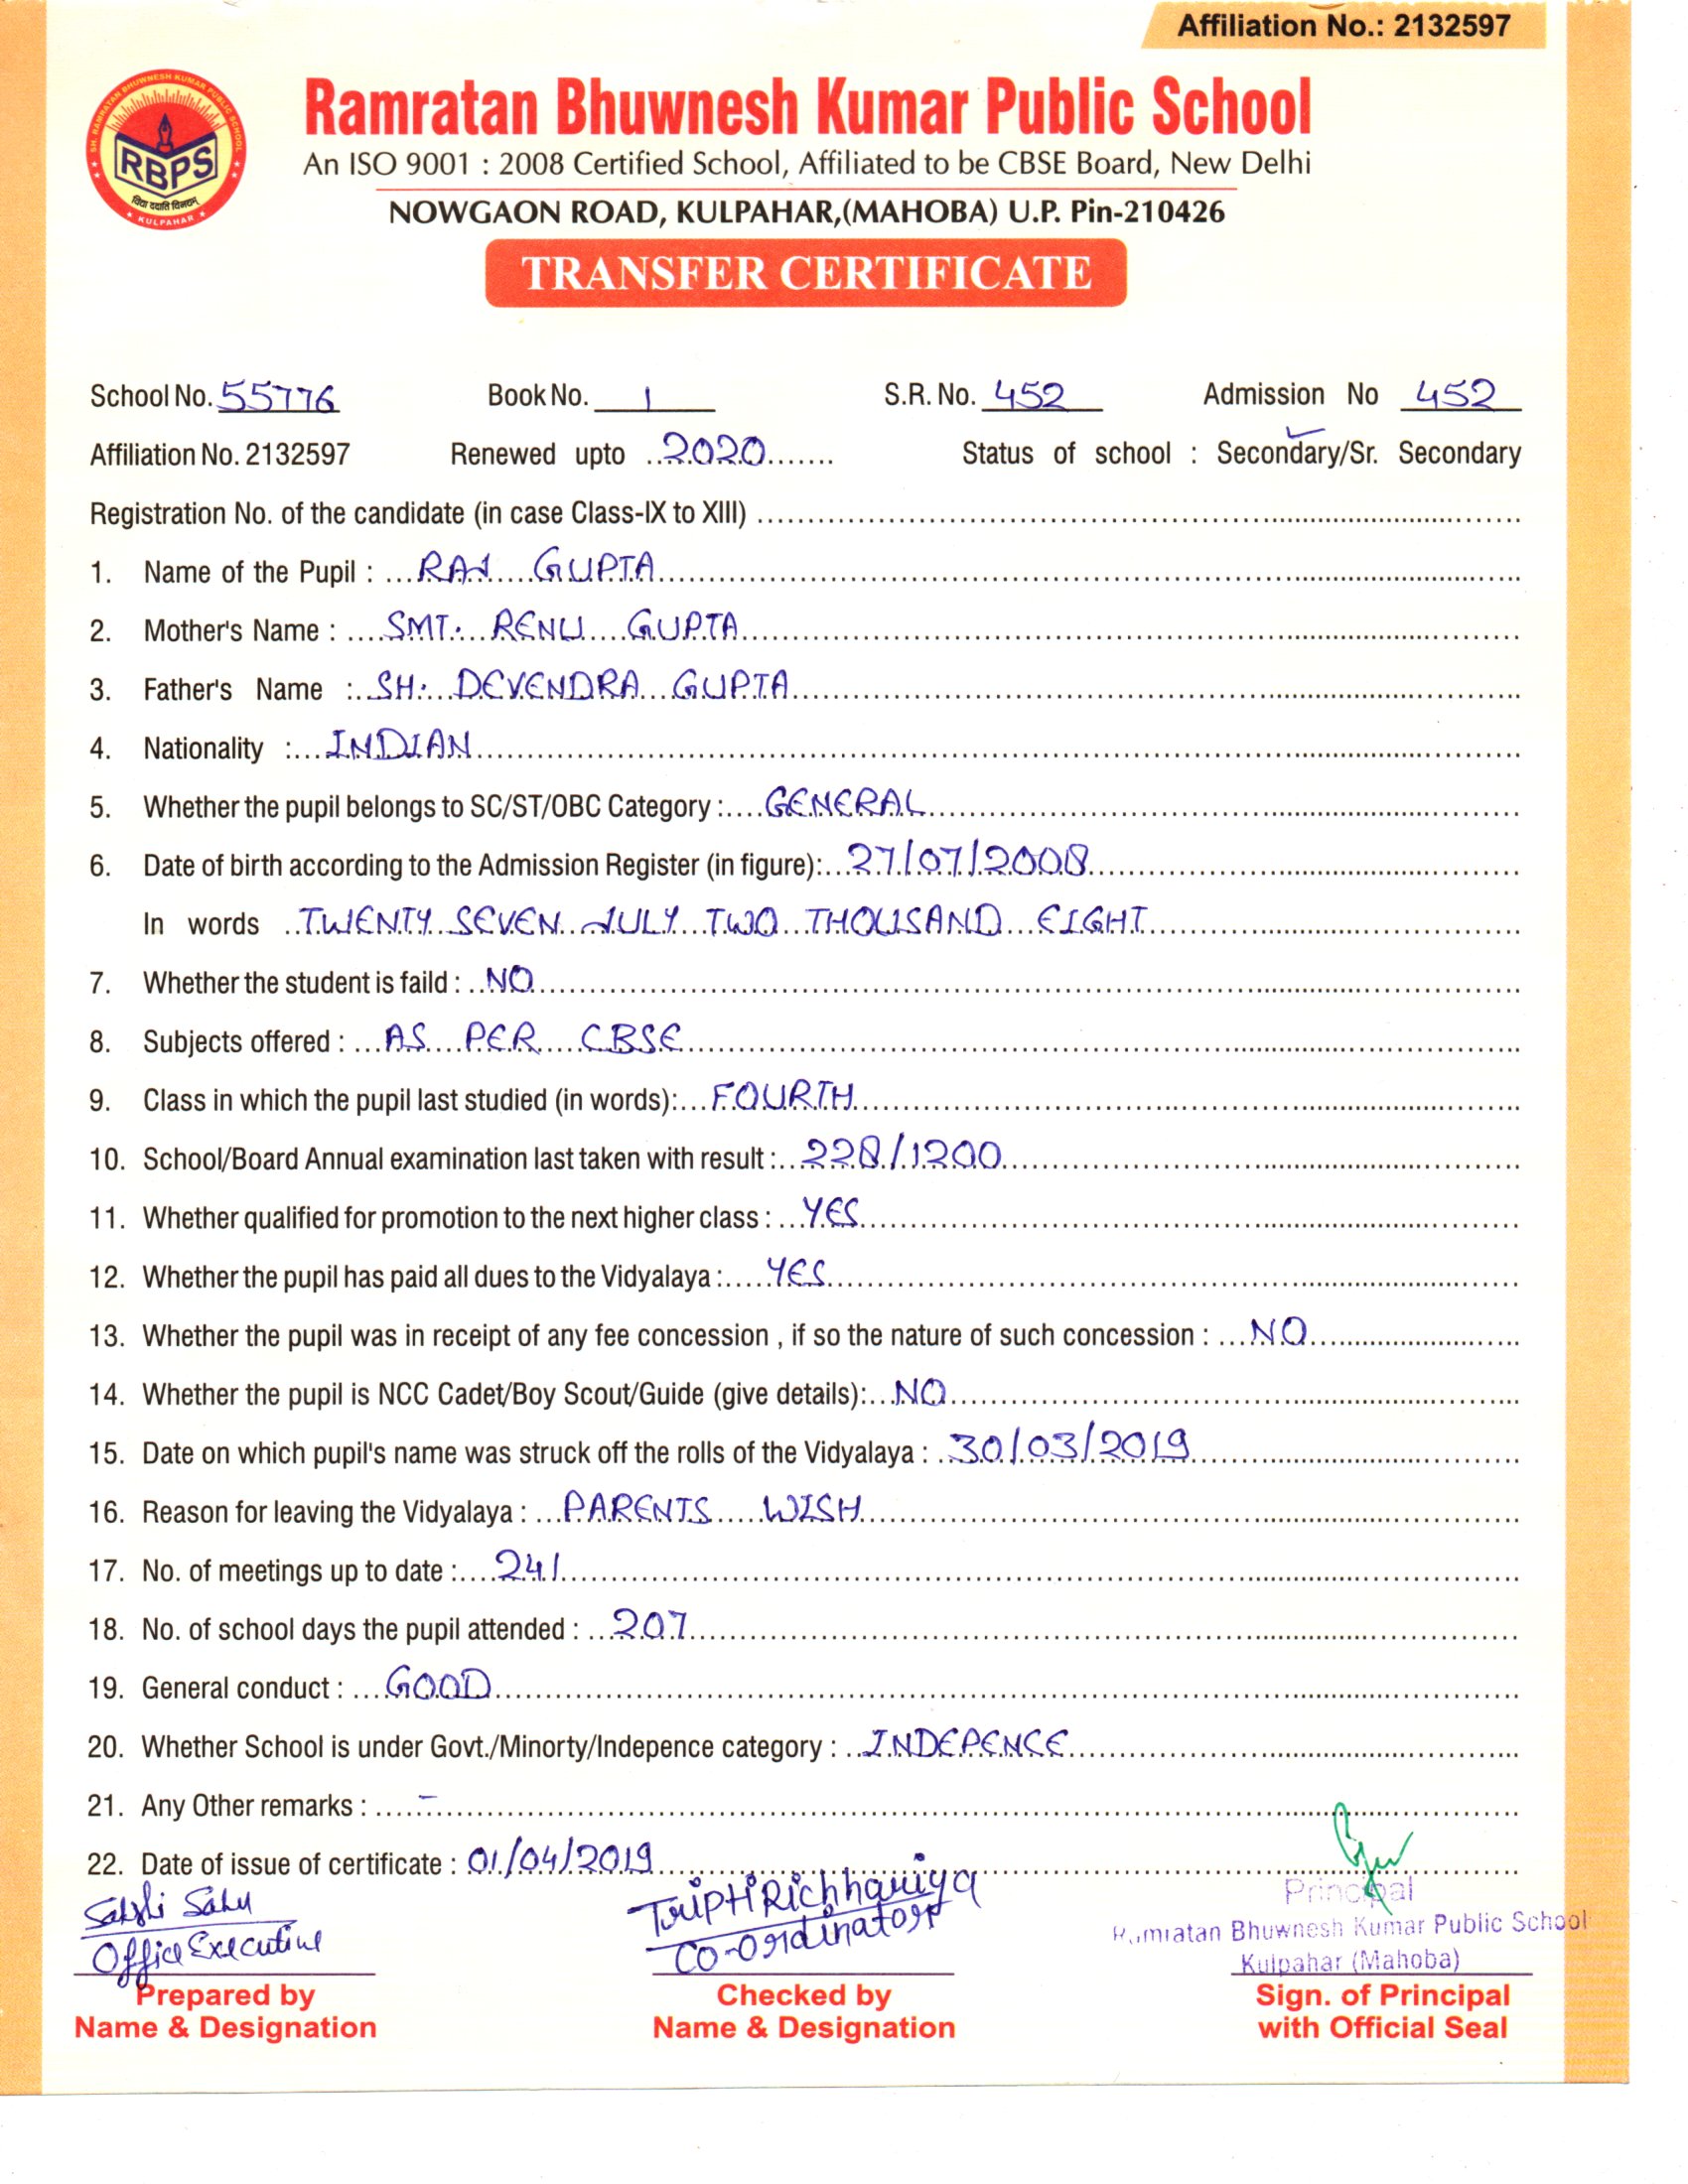 Affiliation No.: 2132597
SH. RAMRATAN BHUWNESH KUMAR PUBLIC SCHOOL
RBPS
विद्या ददाति विनयम्
KULPAHAR
Ramratan Bhuwnesh Kumar Public School
An ISO 9001 : 2008 Certified School, Affiliated to be CBSE Board, New Delhi
NOWGAON ROAD, KULPAHAR,(MAHOBA) U.P. Pin-210426
TRANSFER CERTIFICATE
School No. 55776 Book No. 1 S.R. No. 452 Admission No 452
Affiliation No. 2132597 Renewed upto 2020 Status of school : Secondary/Sr. Secondary
Registration No. of the candidate (in case Class-IX to XIII)
1. Name of the Pupil : RAJ GUPTA
2. Mother's Name : SMT. RENU GUPTA
3. Father's Name : SH. DEVENDRA GUPTA
4. Nationality : INDIAN
5. Whether the pupil belongs to SC/ST/OBC Category : GENERAL
6. Date of birth according to the Admission Register (in figure): 27/07/2008
In words TWENTY SEVEN JULY TWO THOUSAND EIGHT
7. Whether the student is faild : NO
8. Subjects offered : AS PER CBSE
9. Class in which the pupil last studied (in words): FOURTH
10. School/Board Annual examination last taken with result : 228/1200
11. Whether qualified for promotion to the next higher class : YES
12. Whether the pupil has paid all dues to the Vidyalaya : YES
13. Whether the pupil was in receipt of any fee concession , if so the nature of such concession : NO
14. Whether the pupil is NCC Cadet/Boy Scout/Guide (give details): NO
15. Date on which pupil's name was struck off the rolls of the Vidyalaya : 30/03/2019
16. Reason for leaving the Vidyalaya : PARENTS WISH
17. No. of meetings up to date : 241
18. No. of school days the pupil attended : 207
19. General conduct : GOOD
20. Whether School is under Govt./Minorty/Indepence category : INDEPENCE
21. Any Other remarks : -
22. Date of issue of certificate : 01/04/2019
Sakshi Sahu TripTi Richhariya Principal
Office Executive Co-ordinator Ramratan Bhuwnesh Kumar Public School
Kulpahar (Mahoba)
Prepared by Checked by Sign. of Principal
Name & Designation Name & Designation with Official Seal